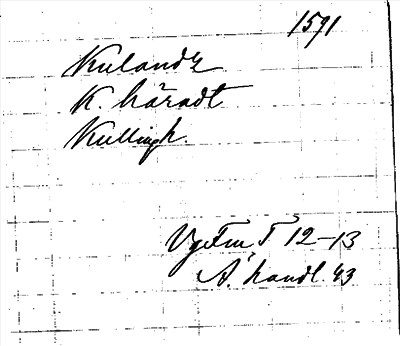 1591
Kulandz
K. häradt
Kullingh.
VgFm I 12-13
Ä. handl. 43